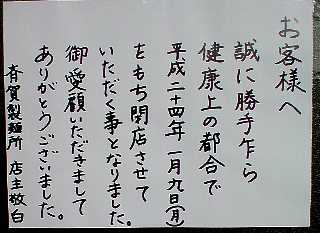 お客様へ
誠に勝手乍ら
健康上の都合で
平成二十四年一月九日(月)
をもち閉店させて
いただく事となりました。
御愛顧いただきまして
ありがとうございました。
斉賀製麺所 店主敬白